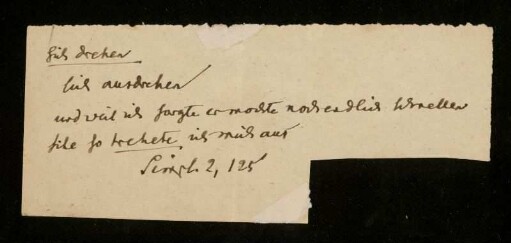 sich drehen
sich ausdrehen
und weil ich sorgte er mochte noch endlich schnellen
file so trehete ich mich aus
Simpl. 2, 125